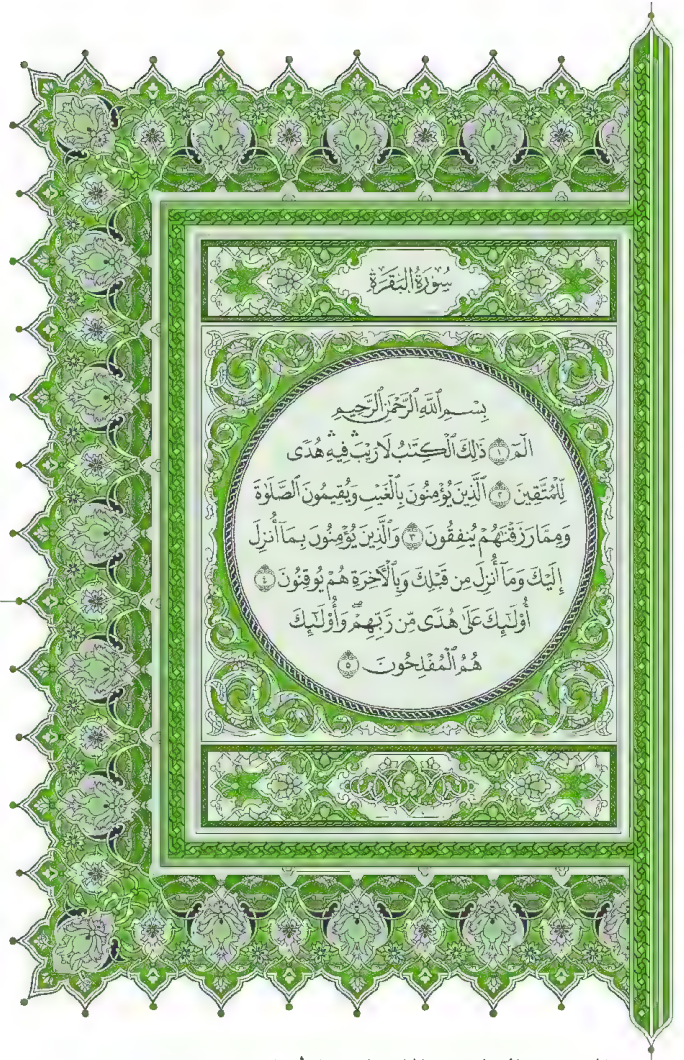 سُورَةُ الْبَقَرَةِ
بِسْمِ ٱللَّهِ ٱلرَّحْمَٰنِ ٱلرَّحِيمِ
الٓمٓ ١ ذَٰلِكَ ٱلْكِتَٰبُ لَا رَيْبَ ۛ فِيهِ ۛ هُدًى
لِّلْمُتَّقِينَ ٢ ٱلَّذِينَ يُؤْمِنُونَ بِٱلْغَيْبِ وَيُقِيمُونَ ٱلصَّلَوٰةَ
وَمِمَّا رَزَقْنَٰهُمْ يُنفِقُونَ ٣ وَٱلَّذِينَ يُؤْمِنُونَ بِمَآ أُنزِلَ
إِلَيْكَ وَمَآ أُنزِلَ مِن قَبْلِكَ وَبِٱلْأَخِرَةِ هُمْ يُوقِنُونَ ٤
أُو۟لَٰٓئِكَ عَلَىٰ هُدًى مِّن رَّبِّهِمْ ۖ وَأُو۟لَٰٓئِكَ
هُمُ ٱلْمُفْلِحُونَ ٥